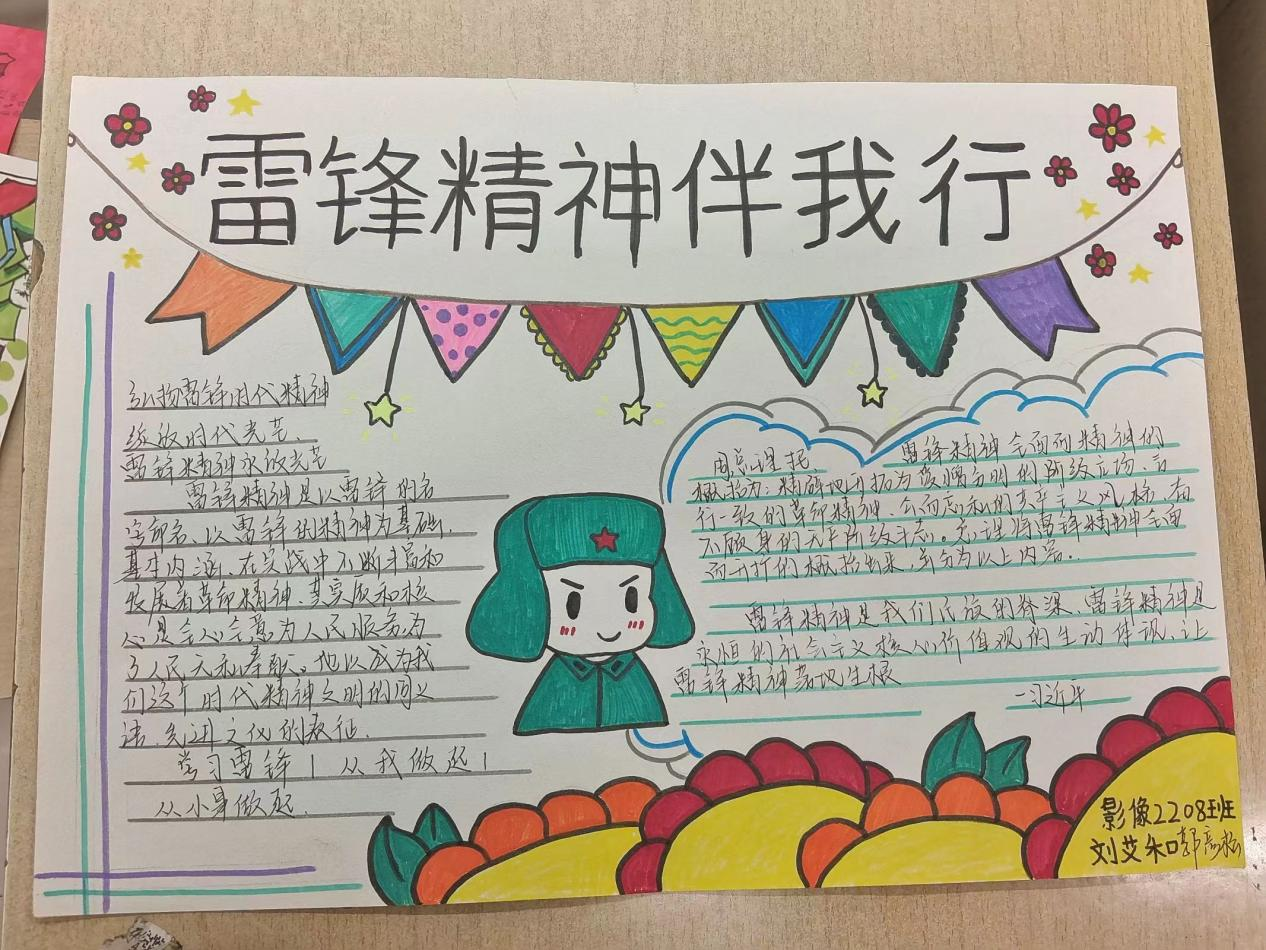 雷锋精神伴我行
弘扬雷锋时代精神
绽放时代光芒、
雷锋精神永放光芒
雷锋精神是以雷锋的名
字命名、以雷锋的精神为基础、
基本内涵、在实践中不断丰富和
发展着革命精神、其实质和核
心是全心全意为人民服务、为
了人民无私奉献。他以成为我
们这个时代精神文明的同义
语、先进文化的表征。
学习雷锋！从我做起！
从小事做起.
周总理把、雷锋精神全面而精辟的
概括为：精辟地概括为爱憎分明的阶级立场、言
行一致的革命精神、公而忘私的共产主义风格、奋
不顾身的无产阶级斗志。总理将雷锋精神全面
而的概括出来，并分为以上内容。
雷锋精神是我们民族的脊梁、雷锋精神是
永恒的社会主义核心价值观的生动体现、让
雷锋精神落地生根
—习近平
影像2208班
刘艾